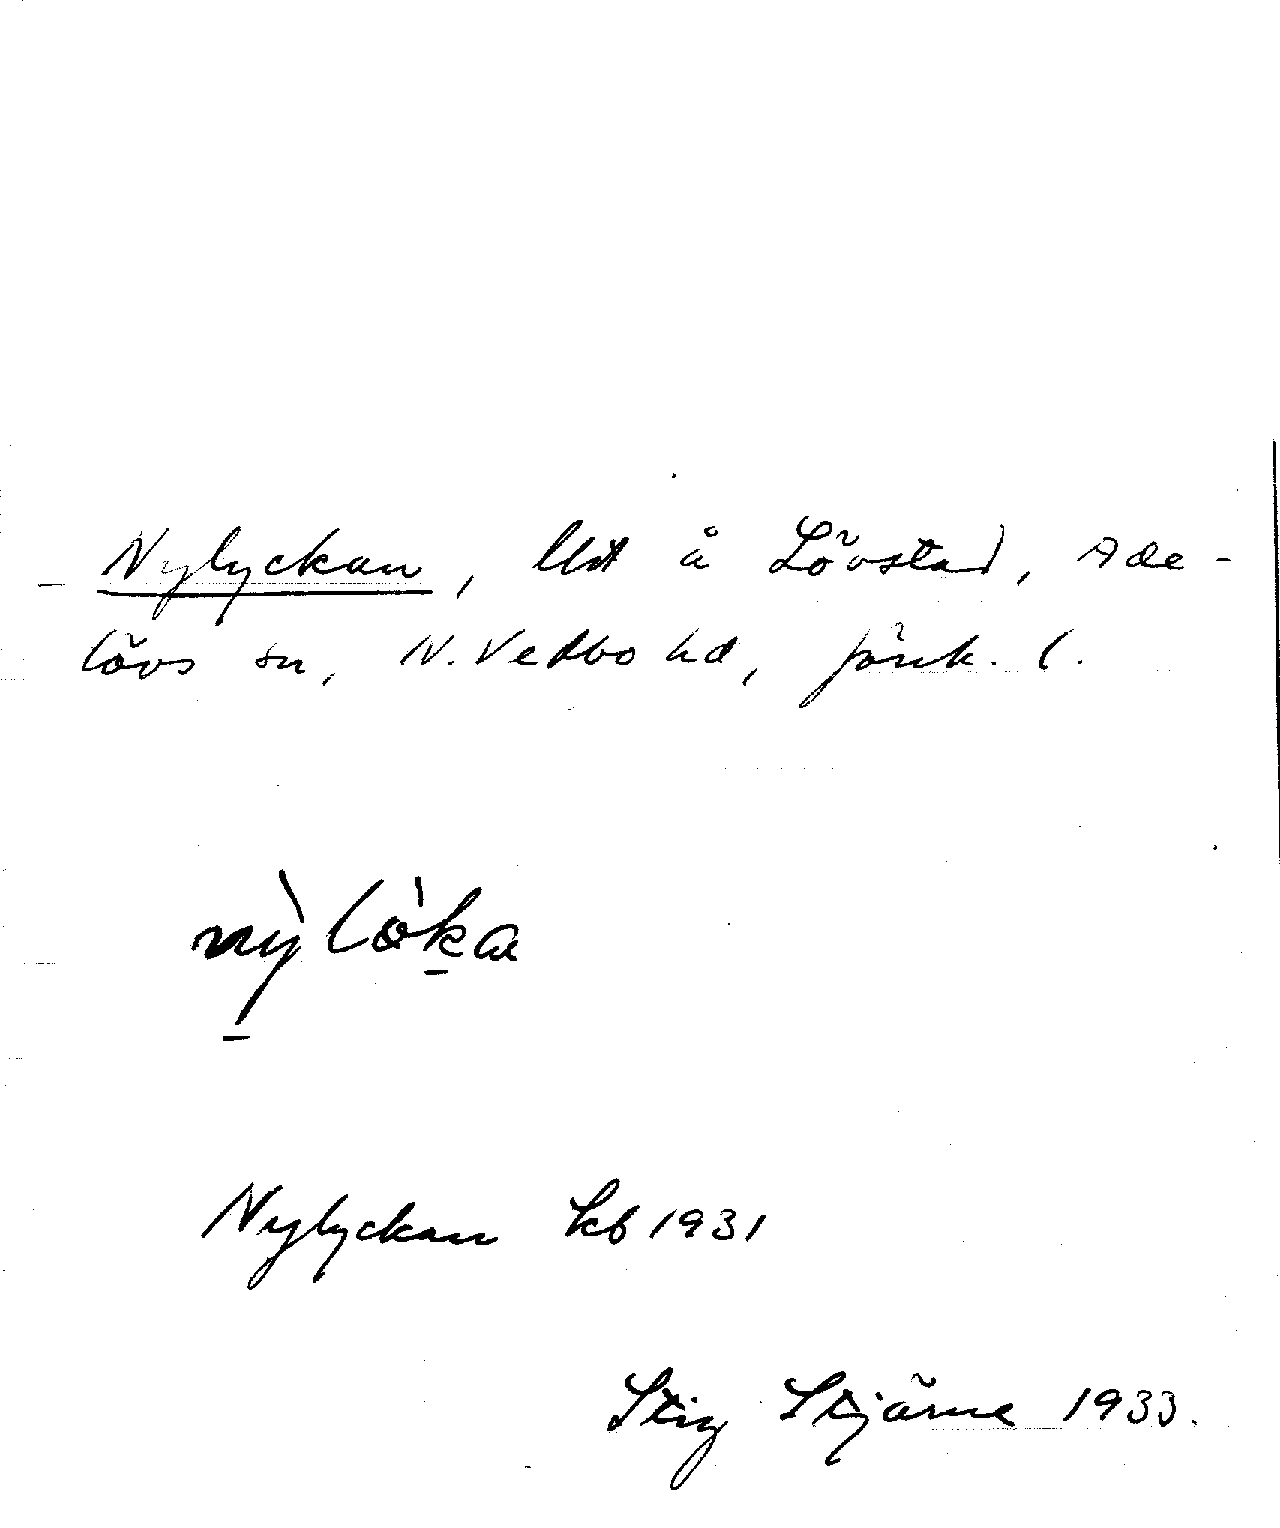 Nylyckan, lht å Lövstad, Ade-
lövs sn, N. Vedbo hd, Jönk. l.
nỳlö̀ka
Nylyckan kb 1931
Stig Stjärne 1933.